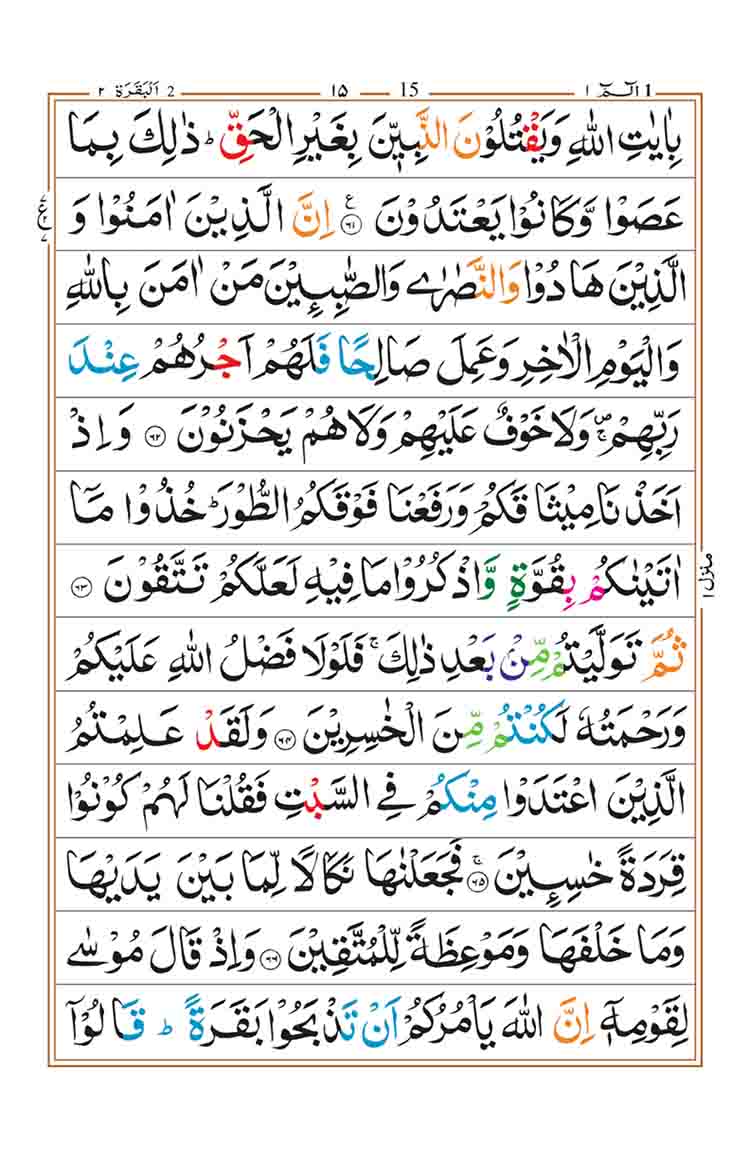 1 الٓـمّٓ ١ 15 ١٥ 2 اَلْبَقَرَة ٢
بِاٰيٰتِ اللّٰهِ وَيَقْتُلُوْنَ النَّبِيّٖنَ بِغَيْرِ الْحَقِّ ؕ ذٰلِكَ بِمَا
عَصَوْا وَّكَانُوْا يَعْتَدُوْنَ ۟ع ٦١ اِنَّ الَّذِيْنَ اٰمَنُوْا وَ
ع
الَّذِيْنَ هَادُوْا وَالنَّصٰرٰى وَالصّٰبِـِٕيْنَ مَنْ اٰمَنَ بِاللّٰهِ
وَالْيَوْمِ الْاٰخِرِ وَعَمِلَ صَالِحًا فَلَهُمْ اَجْرُهُمْ عِنْدَ
رَبِّهِمْ ۪ۚ وَلَا خَوْفٌ عَلَيْهِمْ وَلَا هُمْ يَحْزَنُوْنَ ٦٢ وَاِذْ
اَخَذْنَا مِيْثَاقَكُمْ وَرَفَعْنَا فَوْقَكُمُ الطُّوْرَ ؕ خُذُوْا مَآ
اٰتَيْنٰكُمْ بِقُوَّةٍ وَّاذْكُرُوْا مَا فِيْهِ لَعَلَّكُمْ تَتَّقُوْنَ ٦٣
منزل ١
ثُمَّ تَوَلَّيْتُمْ مِّنْۢ بَعْدِ ذٰلِكَ ۚ فَلَوْلَا فَضْلُ اللّٰهِ عَلَيْكُمْ
وَرَحْمَتُهٗ لَكُنْتُمْ مِّنَ الْخٰسِرِيْنَ ٦٤ وَلَقَدْ عَلِمْتُمُ
الَّذِيْنَ اعْتَدَوْا مِنْكُمْ فِي السَّبْتِ فَقُلْنَا لَهُمْ كُوْنُوْا
قِرَدَةً خٰسِـِٕيْنَ ۚ ٦٥ فَجَعَلْنٰهَا نَكَالًا لِّمَا بَيْنَ يَدَيْهَا
وَمَا خَلْفَهَا وَمَوْعِظَةً لِّلْمُتَّقِيْنَ ٦٦ وَاِذْ قَالَ مُوْسٰى
لِقَوْمِهٖٓ اِنَّ اللّٰهَ يَاْمُرُكُمْ اَنْ تَذْبَحُوْا بَقَرَةً ؕ قَالُوْٓا